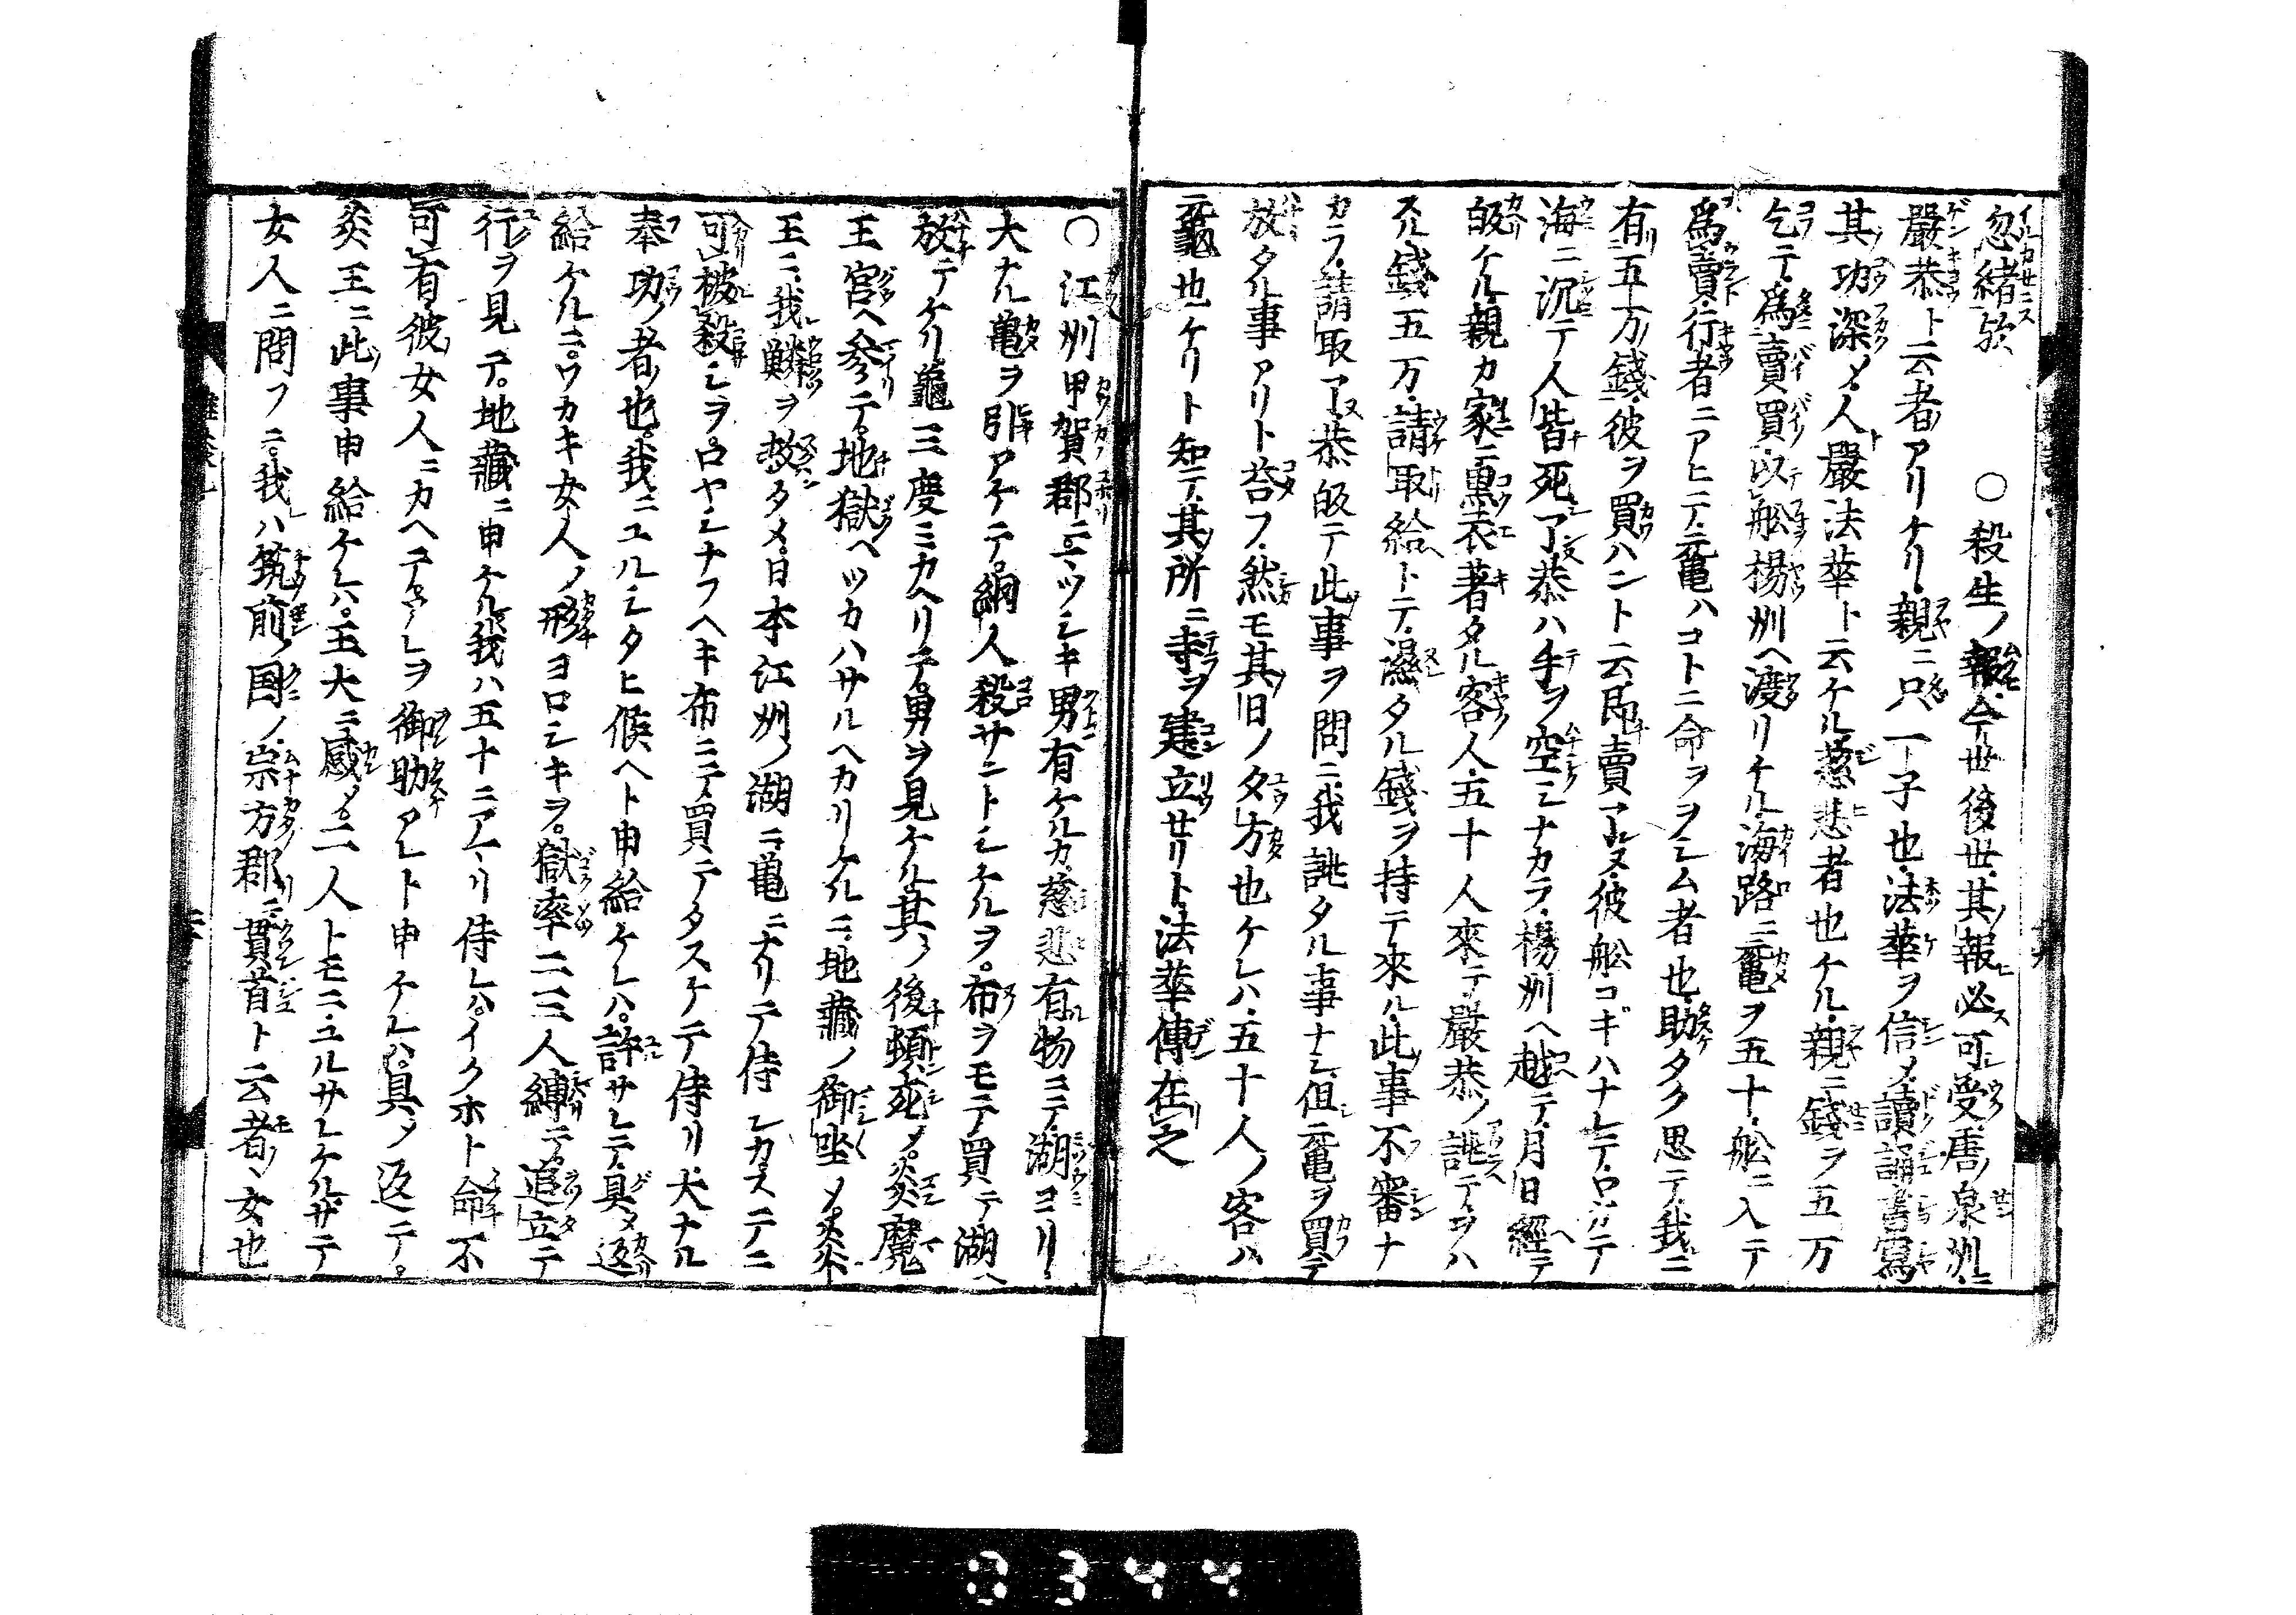 忽緒欤　○殺生ノ報今世後世其報必可受唐ノ泉洲ニ
嚴恭ト云者アリケリ親ニ只一子也法華ヲ信メ讀誦書寫
其功深メ人嚴法華ト云ケル慈悲者也ケル親ニ錢ヲ五万
乞テ為賣買以舩楊州ヘ渡リケル海路ニ黿ヲ五十舩ニ入テ
為賣行者ニアヒテ黿ハコトニ命ヲヲシム者也助タク思テ我ニ
有五万錢彼ヲ買ハント云即賣了ヌ彼舩コギハナレテ
海ニ沉テ人皆死了恭ハ手ヲ空シナカラ楊州ヘ越テ月日經テ
皈ケル親カ家ニ黒衣著タル客人五十人來テ嚴恭ノ誂テヲハ
スル錢五万請取給ヘトテ濕タル錢ヲ持テ來ル此事不審ナ
カラ請取了恭皈テ此事ヲ問ニ我誂タル事ナシ但黿ヲ買テ
放タル事アリト荅フ然モ其旧ノ夕方也ケレハ五十人ノ客ハ
黿也ケリト知テ其所ニ寺ヲ建立セリト法華傳在之
○江州甲賀郡ニマツシキ男有ケルカ慈悲有物ニテ湖ヨリ
大ナル亀ヲ引アケテ網人殺サントシケルヲ布ヲモテ買テ湖ヘ
放テケリ龜三度ミカヘリテ男ヲ見ケル其ノ後頓死メ炎魔
王宮ヘ參テ地獄ヘツカハサルヘカリケルニ地藏ノ御坐メ炎
王ニ我鱗ヲ救タメ日本江州ノ湖ニ亀ニナリテ侍シカステニ
可被殺シヲロヤシナフヘキ布ニテ買テタスケテ侍リ大ナル
奉功ノ者也我ニユルシタヒ候ヘト申給ケレハ許サレテ具メ返
給ケルニワカキ女人ノ形ヨロシキヲ獄率二三人縛テ追立テ
行ヲ見テ地藏ニ申ケル我ハ五十ニアマリ侍レハイクホト命不
可有彼女人ニカヘテアレヲ御助アレト申ケレハ具メ返テ
炎王ニ此事申給ケレハ王大ニ感メ二人トモニユルサレケルサテ
女人ニ問フニ我ハ筑前ノ国ノ宗方郡ニ貫首ト云者ノ女也